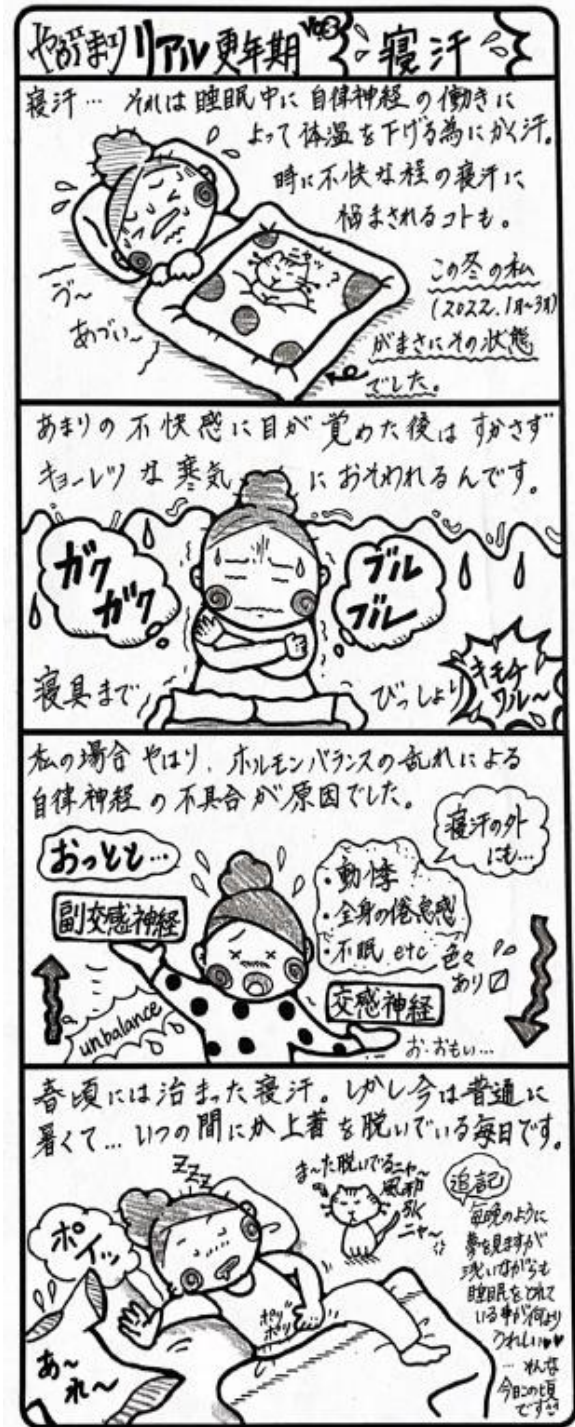 リアル更年期 Vol.3 寝汗
寝汗… それは睡眠中に自律神経の働きに
よって体温を下げる為にかく汗。
時に不快な程の寝汗に
悩まされるコトも。
この冬の私
(2022.1月~3月)
がまさにその状態
でした。
ヴ~
あづい~
あまりの不快感に目が覚めた後はすかさず
キョーレツな寒気におそわれるんです。
ガク
ガク
ブル
ブル
寝具まで
びっしょり
キモチ
ワル~
私の場合やはり、ホルモンバランスの乱れによる
自律神経の不具合が原因でした。
おっとと…
寝汗の外
にも…
副交感神経
・動悸
・全身の倦怠感
・不眠 etc
色々
あり〼
unbalance
交感神経
お・おもい…
春頃には治まった寝汗。しかし今は普通に
暑くて…いつの間にか上着を脱いでいる毎日です。
zzz
ま~た脱いでるニャ~
風邪
引く
ニャ~
ポイッ
あ~
れ~
ポリ
ポリ
追記
毎晩のように
夢を見ますが
浅いながらも
睡眠をとれて
いる事が何より
うれしい♥♥
…そんな
今日この頃
です